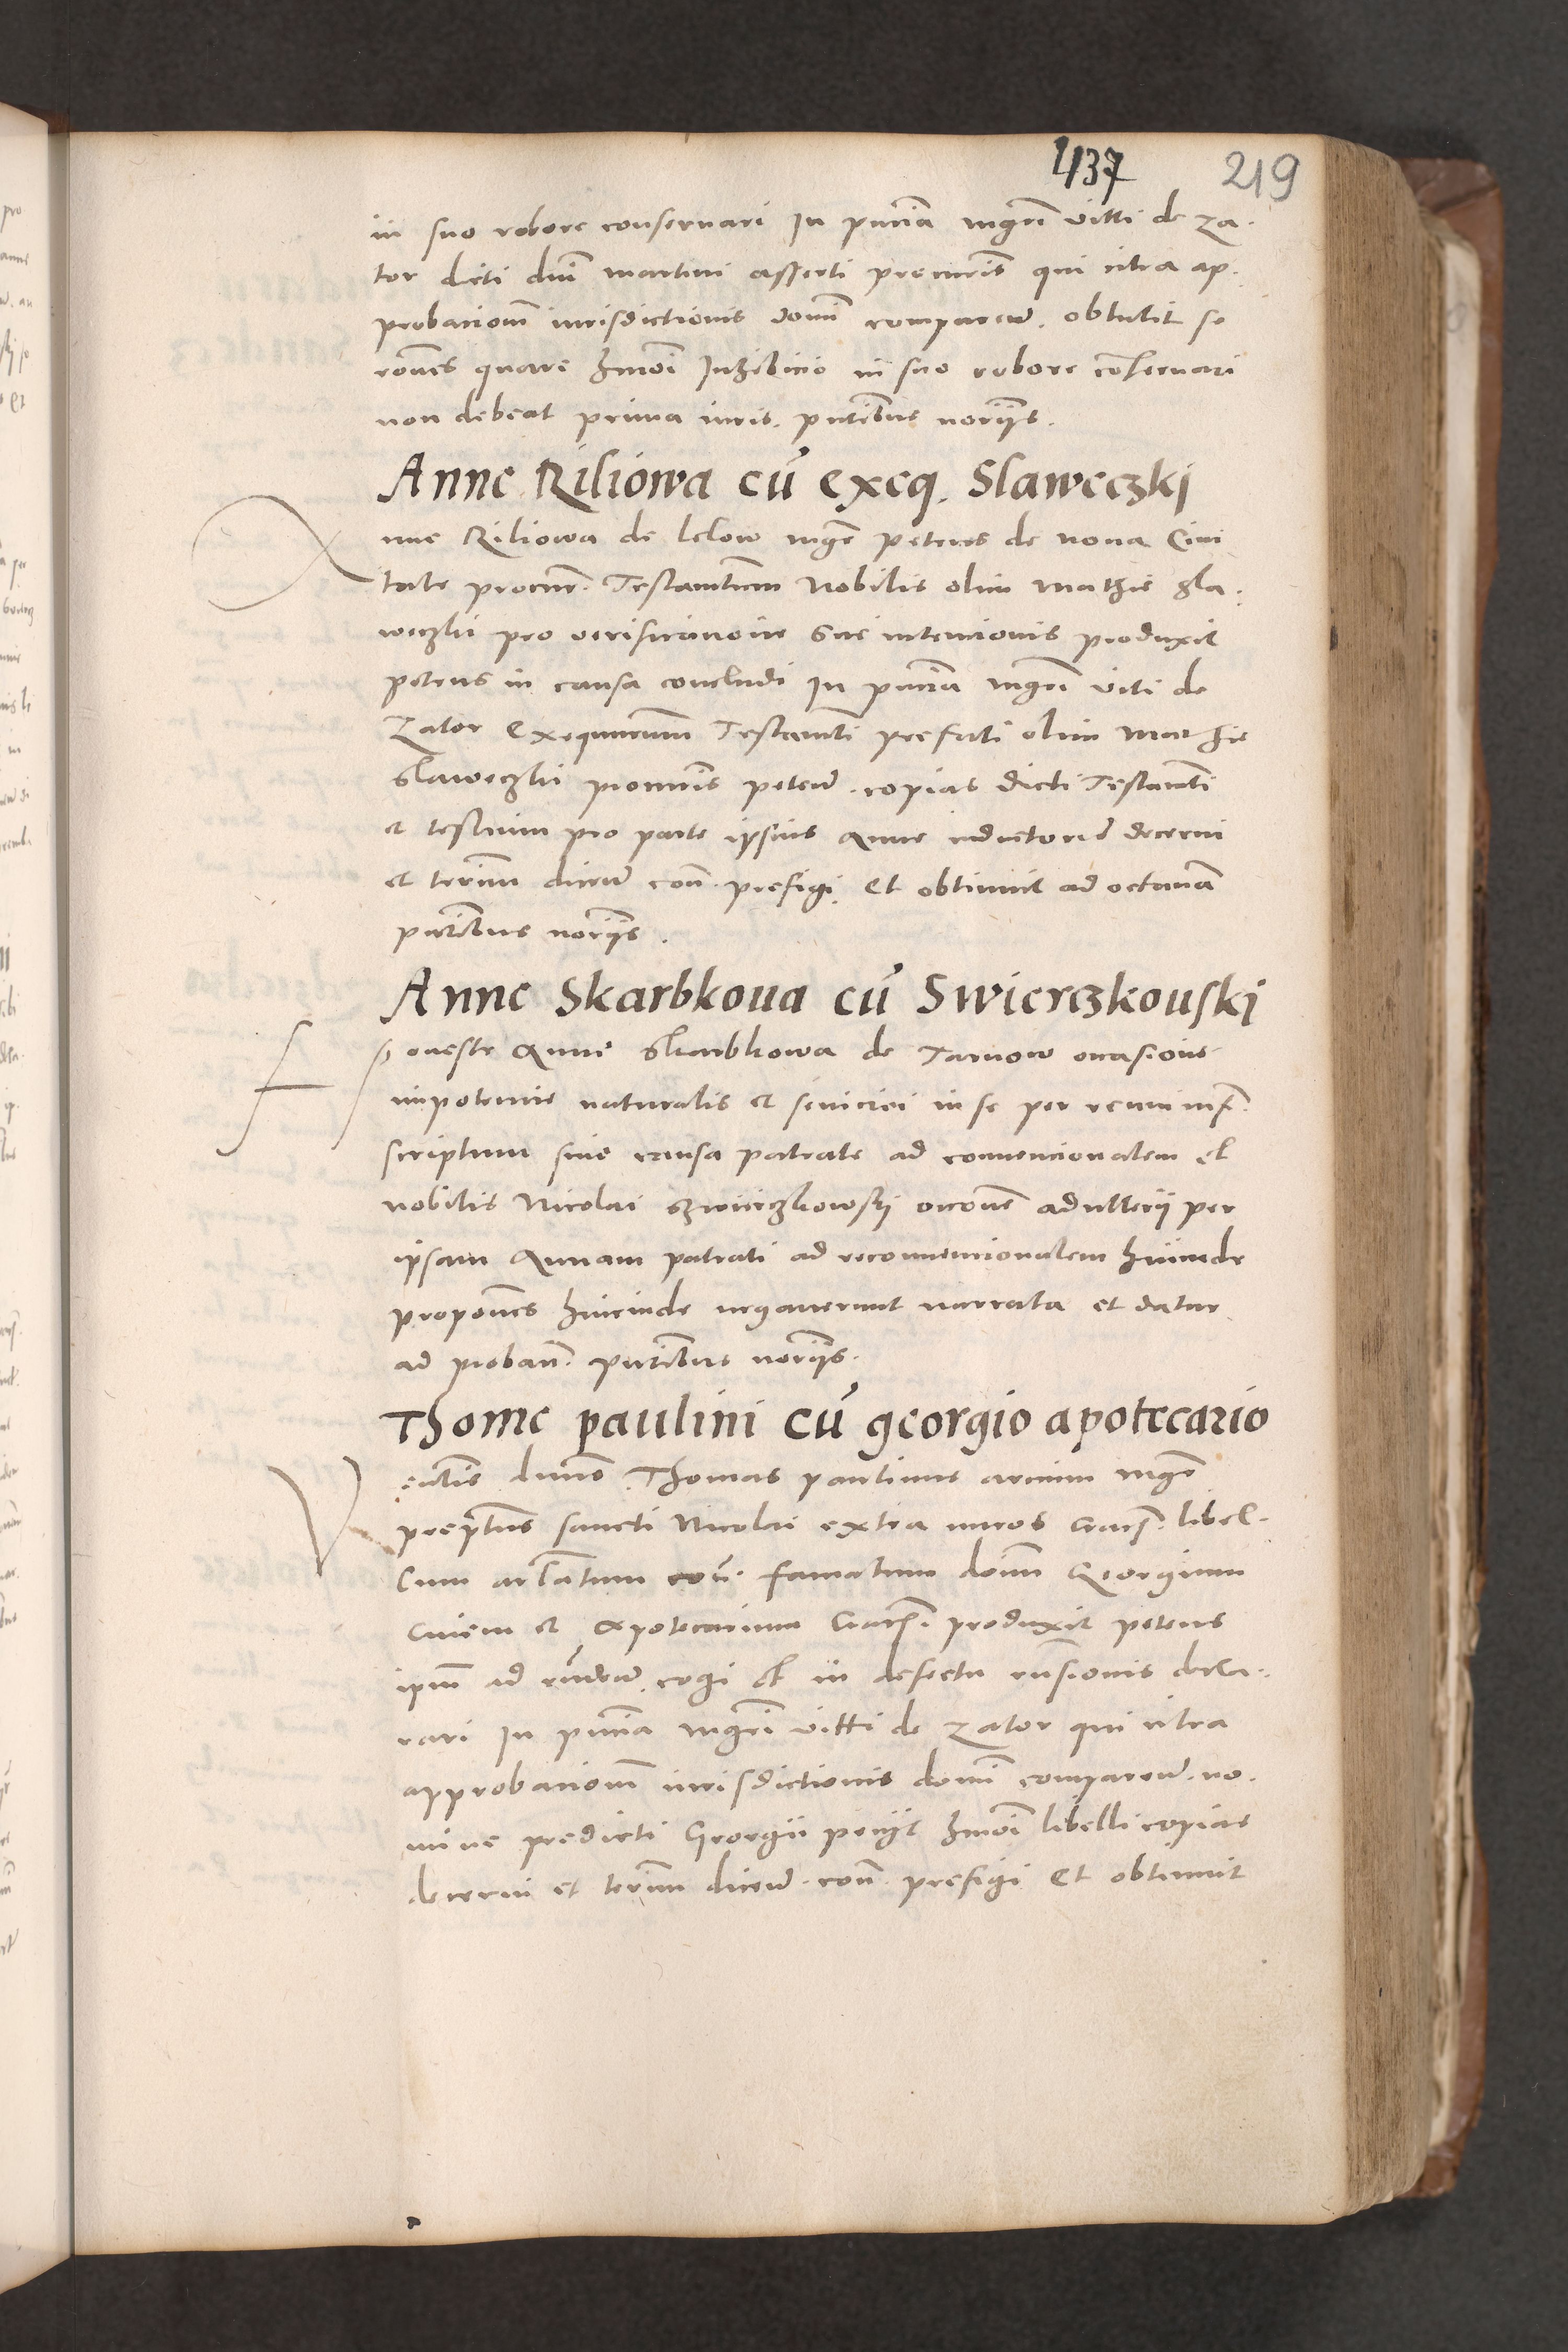 437 219
in suo robore conservari In pñcia mgrĩ vitti de Za-
tor dicti dñi martini asserti procuris qui citra ap-
probacionem iurisdictionis domi comparen. obtulit se
rones quare hmõi Inhibicio in suo robore conservari
non debeat prima iuris. pñtibus norijs.
Anne Riliowa cũ exeq. Slaweczki
Anne Riliowa de lelow mgr petrus de nova Civi
tate procur. Testamentum Nobilis olim mathie sla-
weczki pro verificacione sue intencionis produxit
petens in causa concludi In pñcia mgrĩ viti de
Zator Exequutorum Testamenti prefati olim mathie
slaweczki procuris peten. copias dicti Testamenti
et testium pro parte ipsius Anne inductorum decerni
et terminum dicen. con. prefigi. Et obtinuit ad octavam
pñtibus norijs.
Anne Skarbkoua cũ Swierczkouski
Honeste Anne skarbkowa de Tarnow occasione
impotencie naturalis et seviciei in se per reum infra
scriptum sine causa patrate ad convencionalem et
nobilis Nicolai szwierczkowsky occone adulterij per
ipsam Annam patrati ad reconvencionalem hincinde
propones hincinde negaverunt narrata et datur
ad proban. pñtibus norijs.
Thome paulini cũ georgio apotecario
Vents domins Thomas paulinus arcium mgr
prepctus sancti Nicolai extra muros Cracs. libel-
Cum articlatum con. famatum domin Georgium
civem et Apotecarium Cracs. produxit petens
ipm ad rndend. cogi et in defectu rnsionis decla-
rari In pñcia mgrĩ vitti de Zator qui citra
approbacionem iurisdictionis domi comparen. no-
mine predicti Georgii petijt hmõi libelli copias
decerni et terminum dicen. con. prefigi Et obtinuit